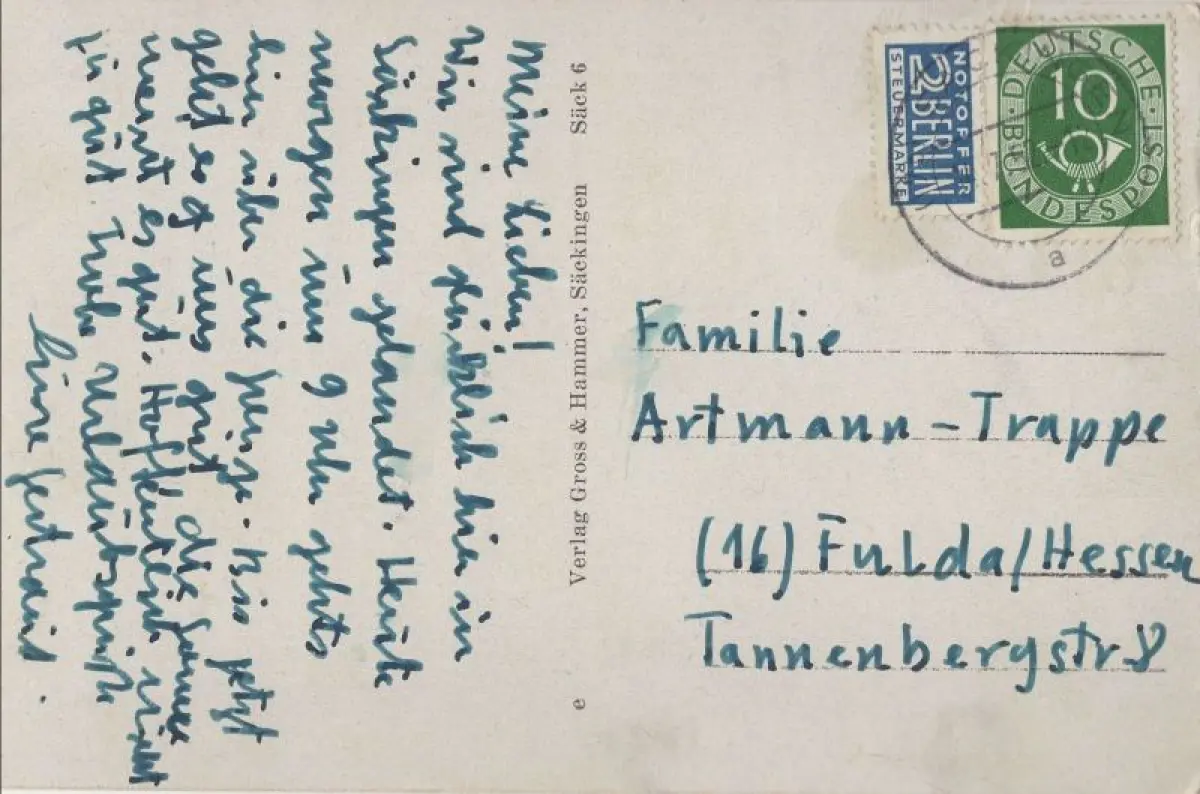 Meine Lieben!
Wir sind glücklich hier in
Säckingen gelandet. Heute
morgen um 9 Uhr gehts
hin über die Grenze. Bis jetzt
geht es uns gut, die Sonne
meint es gut. Hoffentlich nicht
zu gut. Frohe Urlaubsgrüße
Eure Gertraud.
Verlag Gross & Hammer, Säckingen Säck 6
e
NOTOPFER
2 BERLIN
STEUERMARKE
DEUTSCHE BUNDESPOST
10
a
Familie
Artmann-Trappe
(16) Fulda/Hessen
Tannenbergstr 8